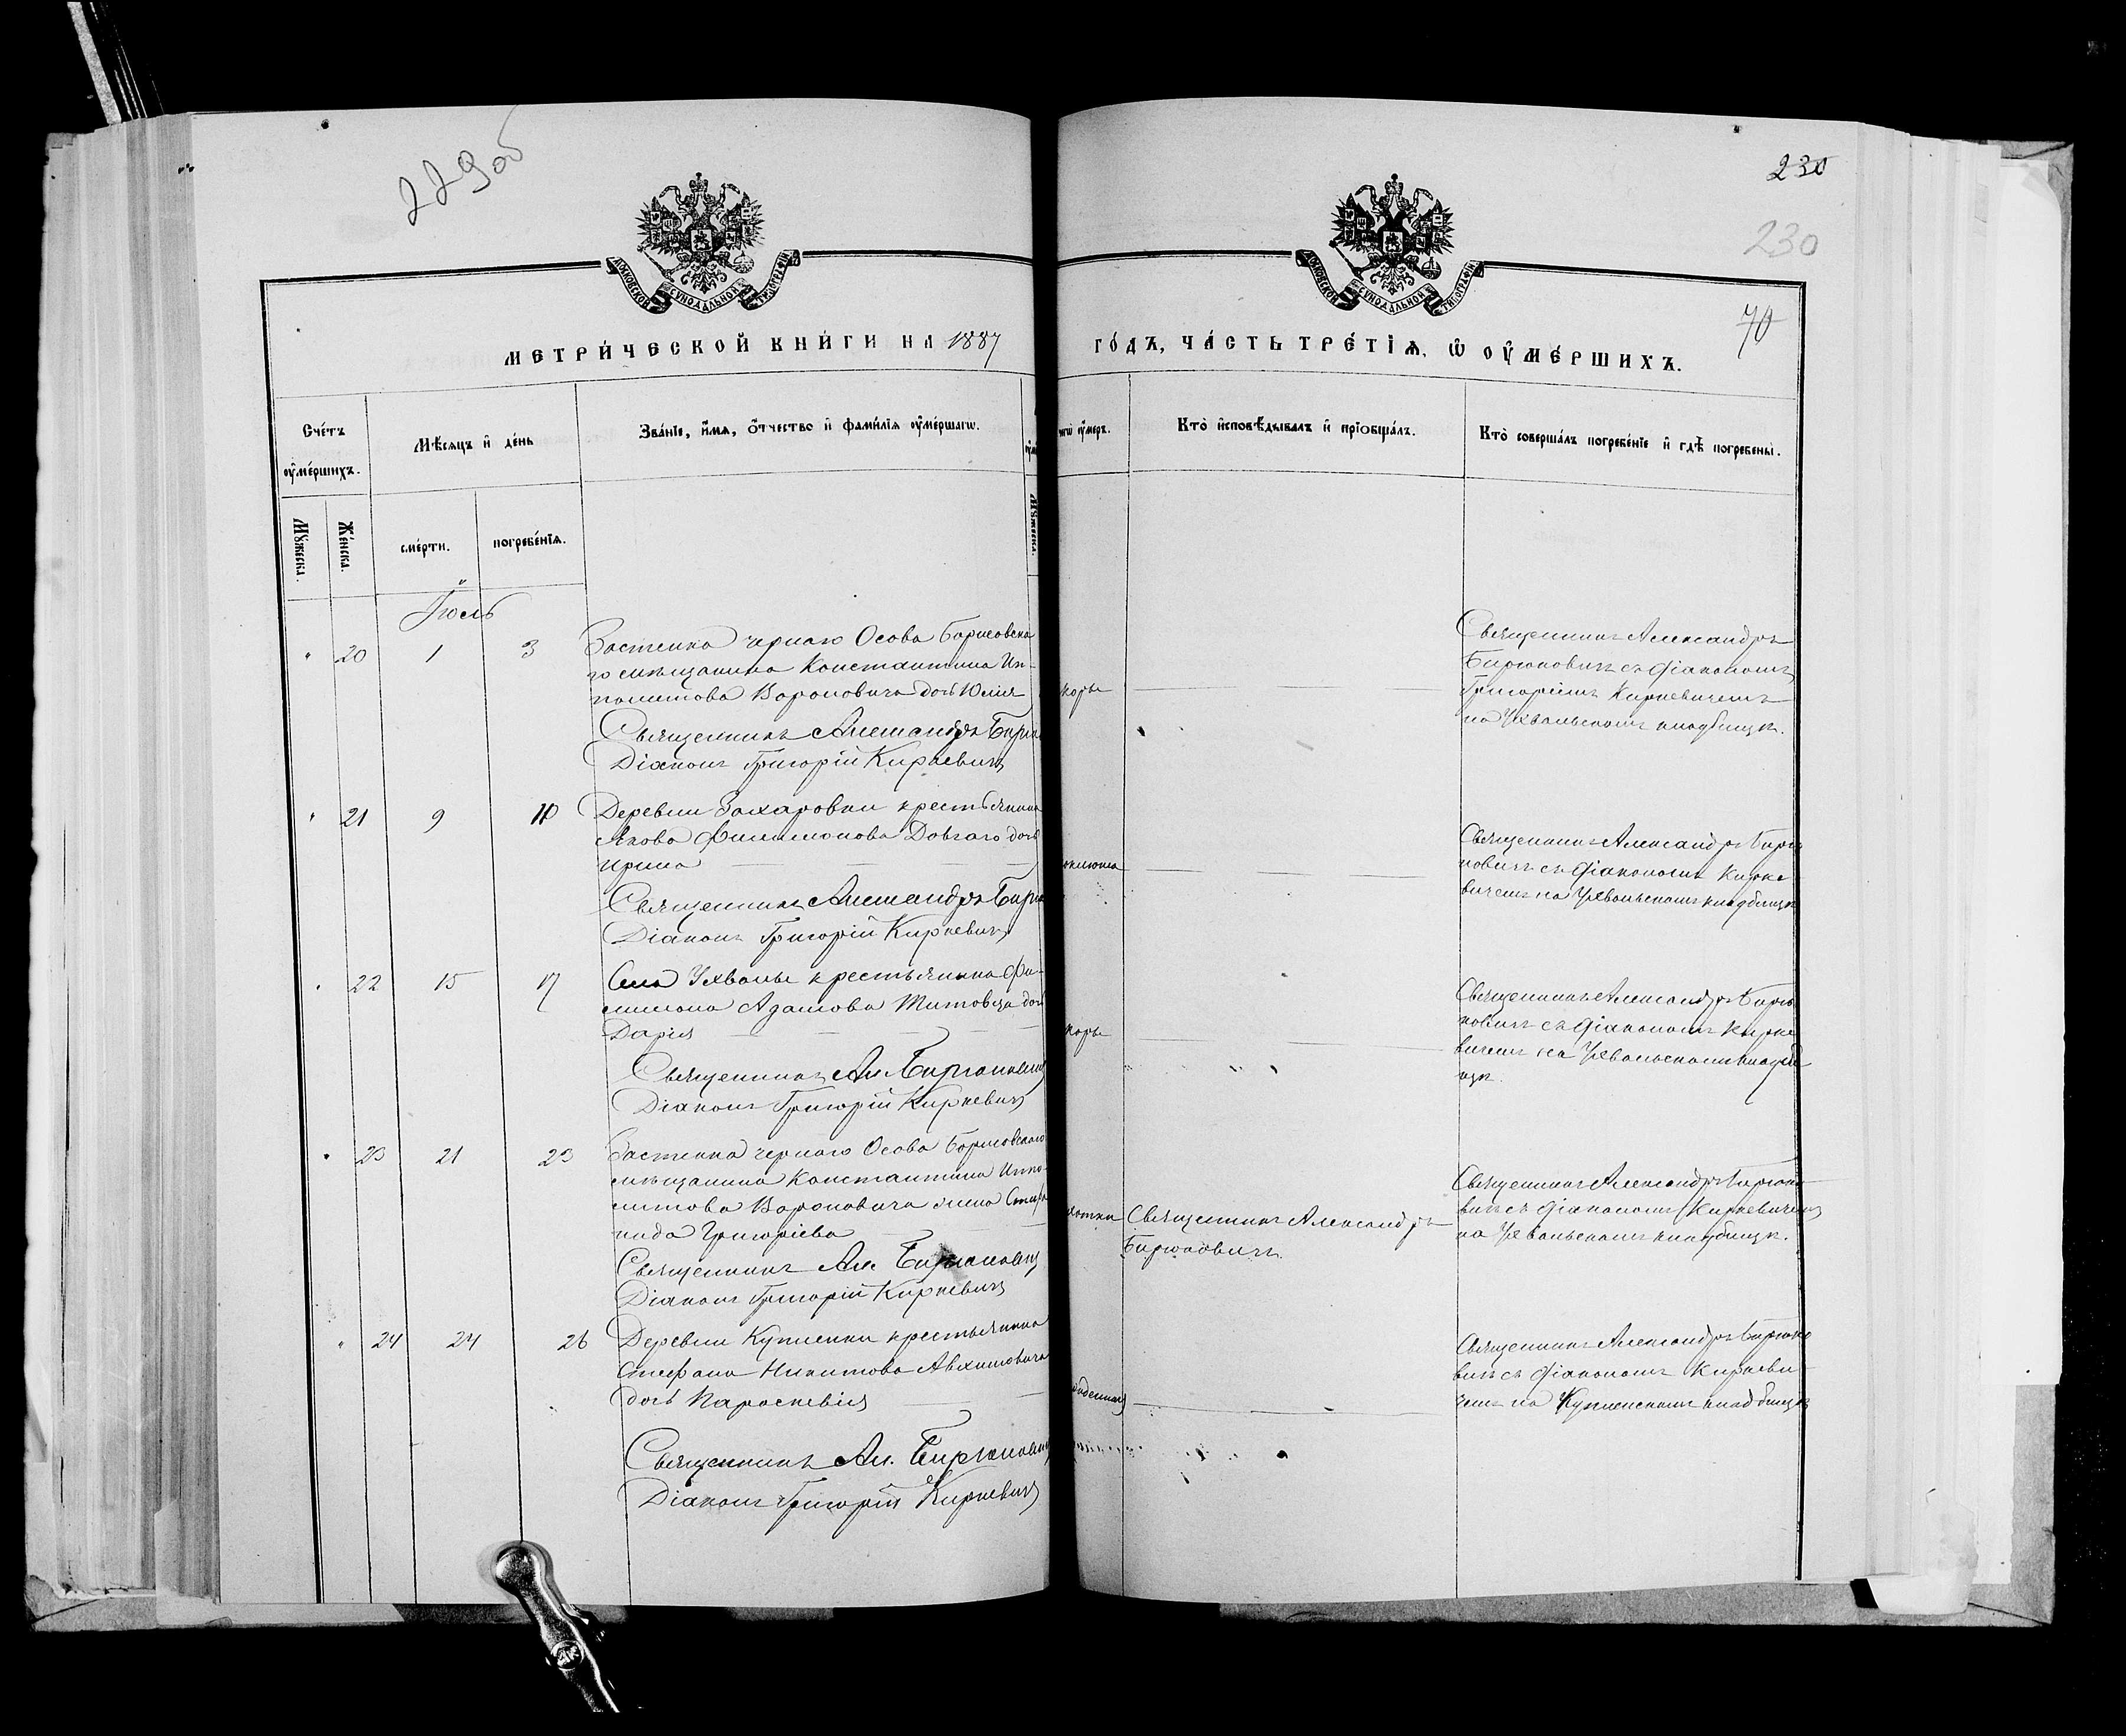 229об
230
230
70
МОСКОВСКОЙ СУНОДАЛЬНОЙ ТИПОГРАФІИ
МОСКОВСКОЙ СУНОДАЛЬНОЙ ТИПОГРАФІИ
МЕТРИ́ЧЕСКОЙ КНИ́ГИ НА 1887
ГО́ДЪ, ЧА́СТЬ ТРЕ́ТІѦ, Ѡ҆ ОУ҆МЕ́РШИХЪ.
Сче́тъ оу҆ме́ршихъ.
Мѣ́сяцъ и҆ де́нь
Зва́нїе, и҆́мѧ, ѻ҆́тчество и҆ фами́лїѧ оу҆ме́ршагѡ.
чегѡ̀ оу҆́меръ.
Кто̀ и҆сповѣ́дывалъ и҆ прїобща́лъ.
Кто̀ соверша́лъ погребе́нїе и҆ гдѣ̀ погребены̀.
Мꙋ́жеска.
Же́нска.
сме́рти.
погребе́нїѧ.
Мꙋ́жеска.
Іюль
" 20 1 3
Застенка Чернаго Осова Борисовска
го мѣщанина Константина Ип-
политова Вороновича дочь Юлія
Священникъ Александръ Бирю
Діаконъ Григорій Киркевичъ
коры
Священникъ Александръ
Бирюковичъ съ діакономъ
Григоріемъ Киркевичемъ
на Ухвальскомъ кладбищѣ.
" 21 9 10
Деревни Захаровки крестьянина
Якова Филимонова Довгаго дочь
Ирина
Священникъ Александръ Бирю
Діаконъ Григорій Киркевичъ
коклюша
Священникъ Александръ Бирю
ковичъ съ діакономъ Кирке
вичемъ на Ухвальскомъ кладбищѣ
" 22 15 17
Села Ухвалы крестьянина Фи-
лимона Адамова Титовца дочь
Дарія
Священникъ Ал. Бирюковичъ
Діаконъ Григорій Киркевичъ
коры
Священникъ Александръ Бирю
ковичъ съ діакономъ Кирке
вичемъ на Ухвальскомъ кладби
щѣ.
" 23 21 23
Застенка Чернаго Осова Борисовскаго
мѣщанина Константина Иппо-
литова Вороновича жена Степа
нида Григоріева
Священникъ Ал. Бирюковичъ
Діаконъ Григорій Киркевичъ
чахотки
Священникъ Александръ
Бирюковичъ.
Священникъ Александръ Бирюко
вичъ съ діакономъ Киркевичемъ
на Ухвальскомъ кладбищѣ.
" 24 24 26
Деревни Купленки крестьянина
Стефана Никитова Авхимовича
дочь Параскевія
Священникъ Ал. Бирюковичъ
Діаконъ Григорій Киркевичъ
Священникъ Александръ Бирюко
вичъ съ діакономъ Киркеви
чемъ на Купленскомъ кладбищѣ